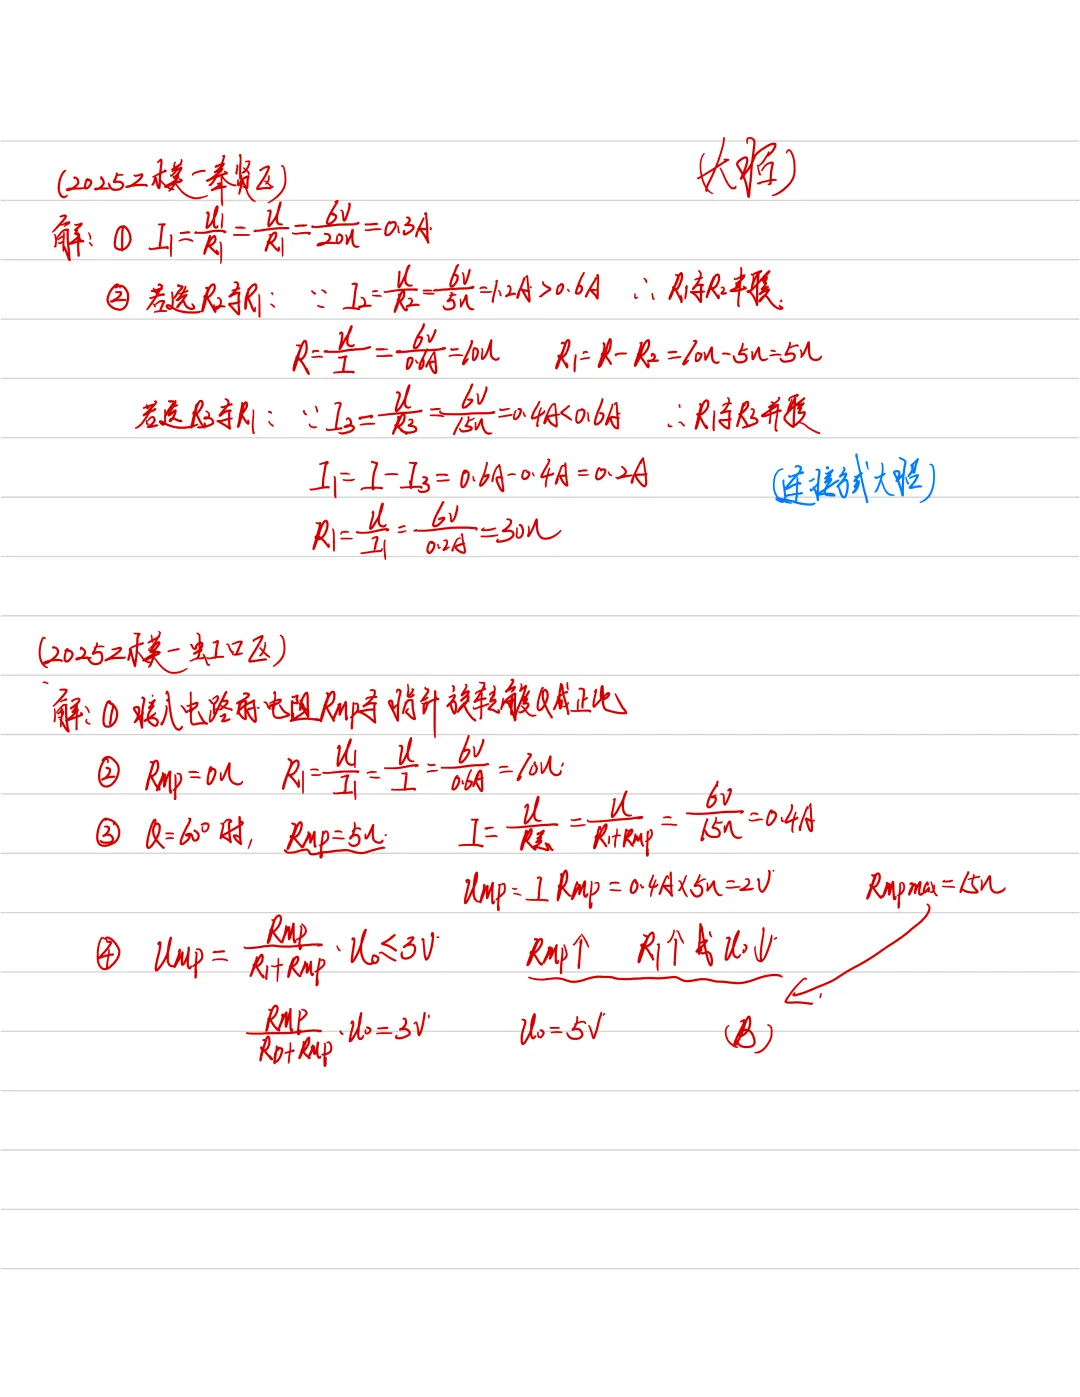 (2025二模一奉贤区)
(大题)
解: ① I₁=U₁/R₁=U/R₁=6V/20Ω=0.3A
② 若选R₂与R₁: ∵ I₂=U/R₂=6V/5Ω=1.2A>0.6A ∴R₁与R₂串联.
R=U/I=6V/0.6A=10Ω R₁=R-R₂=10Ω-5Ω=5Ω
若选R₃与R₁: ∵I₃=U/R₃=6V/15Ω=0.4A<0.6A ∴R₁与R₃并联
I₁=I-I₃=0.6A-0.4A=0.2A
(连接方式大题)
R₁=U/I₁=6V/0.2A=30Ω
(2025二模一虹口区)
解: ① 接入电路的电阻RMP与指针旋转角度Q成正比
② RMP=0Ω R₁=U₁/I₁=U/I=6V/0.6A=10Ω
③ Q=60°时, RMP=5Ω I=U/R总=U/(R₁+RMP)=6V/15Ω=0.4A
UMP=I RMP=0.4A×5Ω=2V RMPmax=15Ω
④ UMP=RMP/(R₁+RMP)·U₀≤3V RMP↑ R₁↑或U₀↓
RMP/(R₀+RMP)·U₀=3V U₀=5V (B)